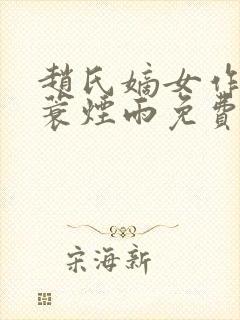 趙氏嫡女作
蓑煙雨免費
宋海新